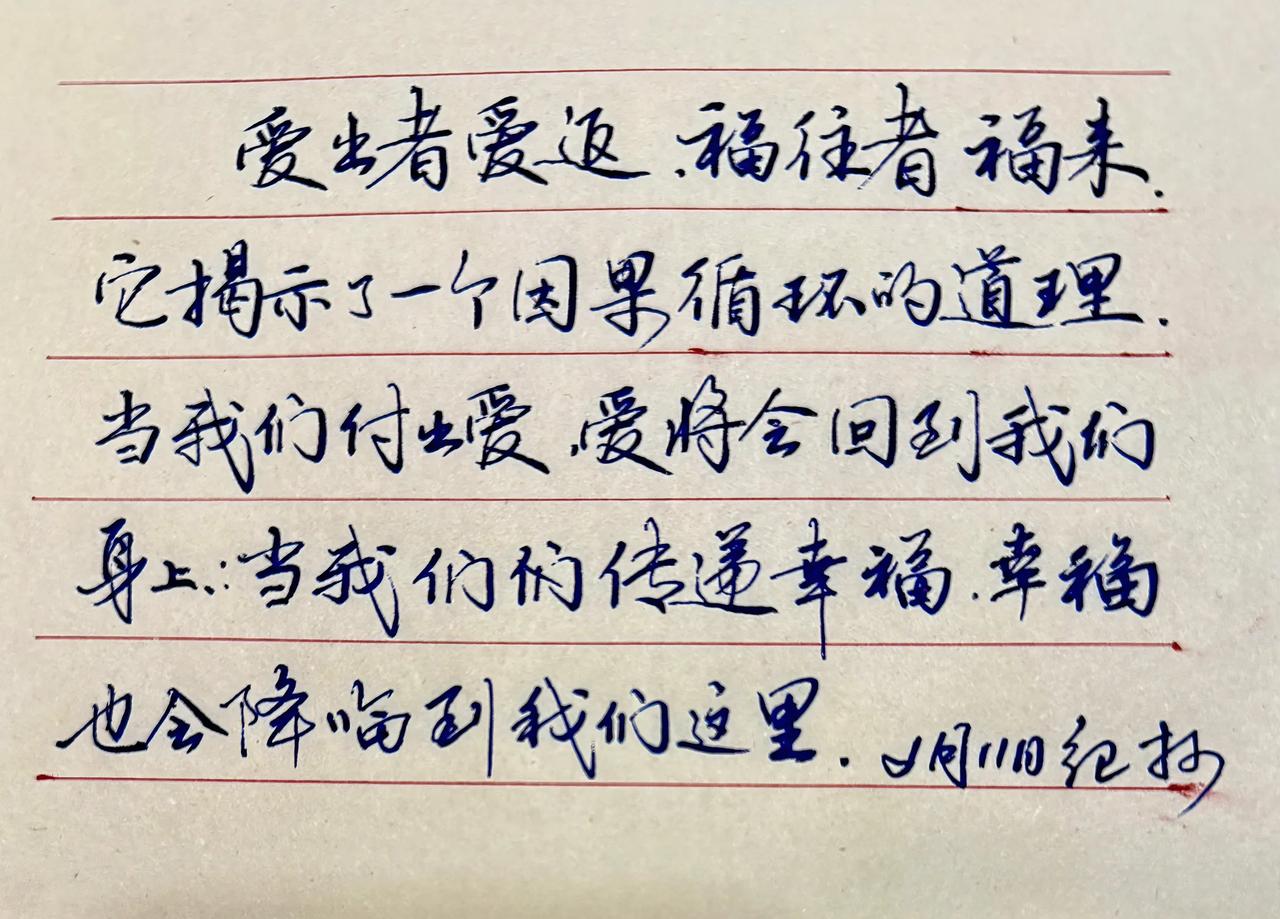 爱出者爱返,福往者福来.
它揭示了一个因果循环的道理.
当我们付出爱,爱将会回到我们
身上.:当我们们传递幸福.幸福
也会降临到我们这里.
月11日纪抄